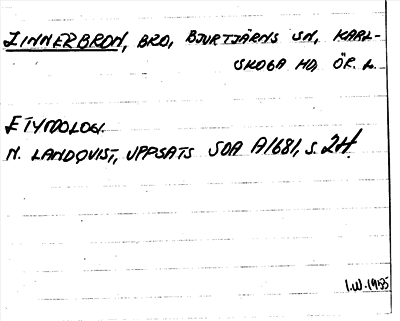 LINNERBRON, BRO, BJURTJÄRNS SN, KARL-
SKOGA HD, ÖR. L.
ETYMOLOGI.
N. LANDQVIST, UPPSATS SOA A1681, S. 24.
I.W. 1955